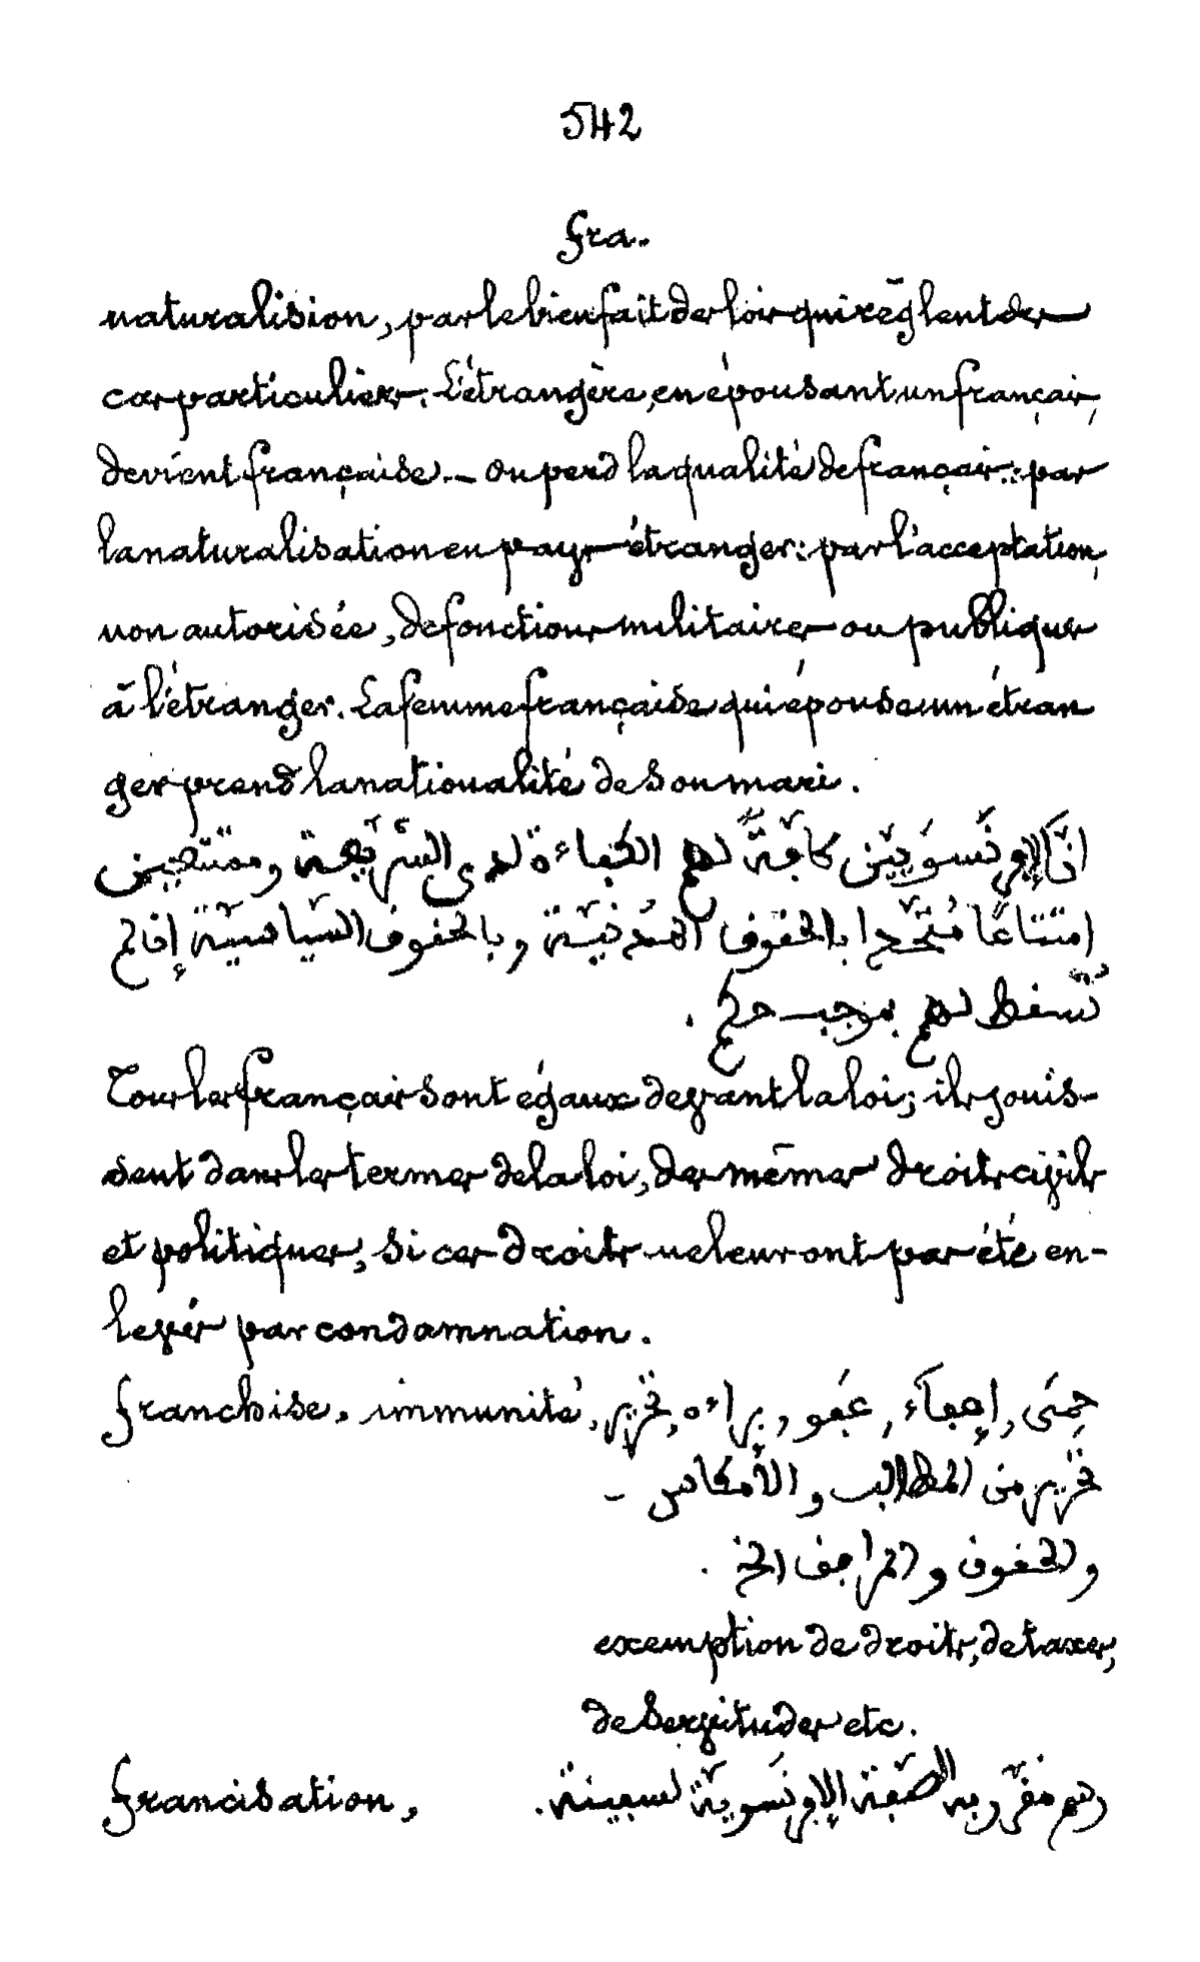 542
fra.
naturalision, par le bienfait des lois qui règlent des
cas particuliers. L'étrangère, en épousant un français,
devient française. — On perd la qualité de français: par
la naturalisation en pays étranger: par l'acceptation,
non autorisée, de fonctions militaires ou publiques
à l'étranger. La femme française qui épouse un étran
ger prend la nationalité de son mari.
انّ الإفرنسَويّين كافّةً لهم الكفاءة لدى الشّريعة وممتّعين
امتتاعًا مُتّحدا بالحقوق المدنيّة وبالحقوق السّياسيّة إذا لم
تُسقط لهم بموجب حكم.
Tous les français sont égaux devant la loi; ils jouis-
sent dans les termes de la loi, des mêmes droits civils
et politiques, si ces droits ne leur ont pas été en-
levés par condamnation.
franchise. immunité, حِمَى, إعفاء, عَفو, براءة, تحرير
تحرير من المطالب والأمكاس -
والحقوق والمرافق الخ.
exemption de droits, de taxes,
de servitudes etc.
francisation, رسم مقرّ به الصّفة الإفرنسَويّة لسفينة.